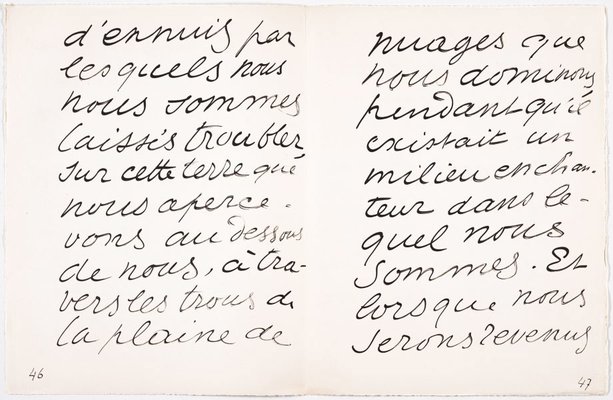 d'ennuis par
lesquels nous
nous sommes
laissés troubler
sur cette terre que
nous aperce-
vons au dessous
de nous, à tra-
vers les trous de
la plaine de
46
nuages que
nous dominons
pendant qu'il
existait un
milieu enchan-
teur dans le-
quel nous
sommes. Et
lorsque nous
serons revenus
47